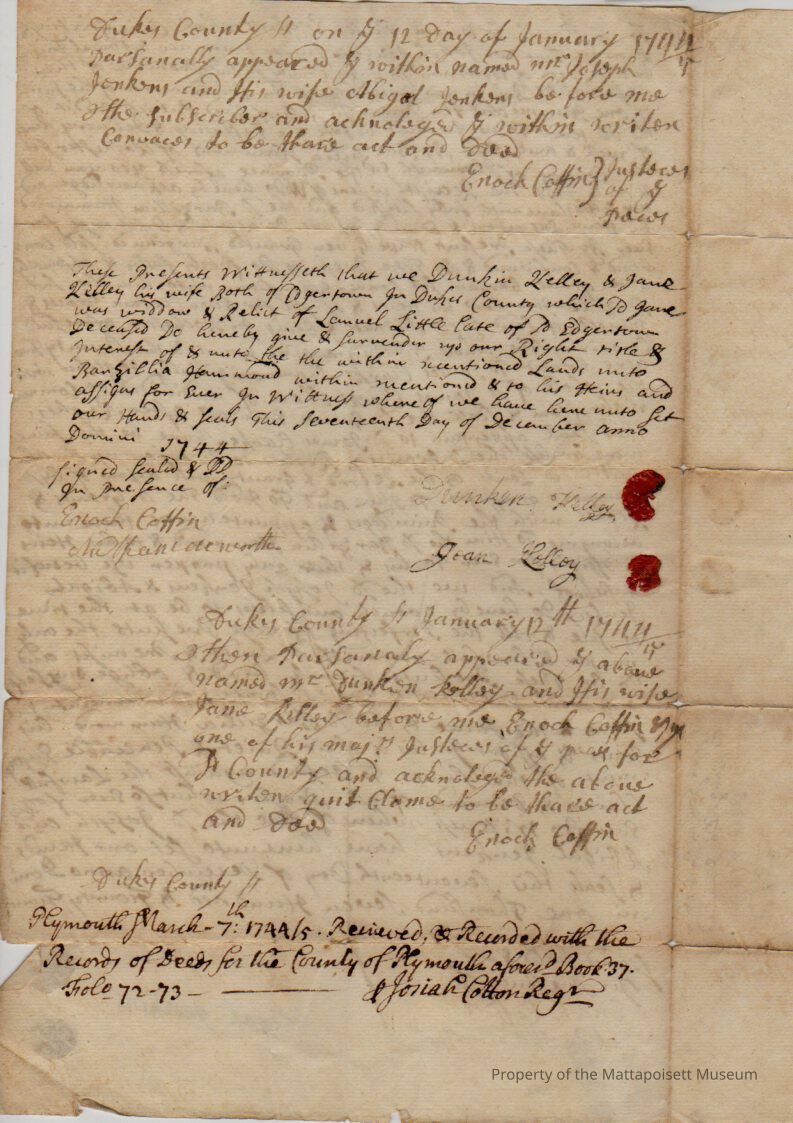 Dukes County ss on ye 12 Day of January 1744/5
Parsanally appeared ye within named mr Joseph
Jenkens and His wife Abigal Jenkens before me
the Subscriber and acknoleged ye within writen
Convaces to be thare act and Deed
Enoch Coffin } Justeces
of ye
peces
These Presents Wittnesseth that we Dunkin Kelley & Jane
Kelley his wife Both of Edgertown In Dukes County which sd Jane
was widdow & Relict of Samuel Little Late of sd Edgertown
Deceased Do hereby give & Surrender up our Right title &
Interest of & unto the the within mentioned Lands unto
Barzillia Hammond within mentioned & to his Heirs and
assigns for Ever In Wittness where of we have here unto Set
our Hands & Seals This Seventeenth Day of December anno
Domini 1744
Signed Sealed & DD
In Presence of:
Enoch Coffin
Dunken Kelley
Jean Kelley
Dukes County ss January 12th 1744/5
then Parsanaly appeared ye above
named mr Dunken Kelley and His wife
Jane Kelley before me Enoch Coffin Esqr
one of his majts Justeces of ye peace for
sd County and acknoleged the above
writen quit Clame to be thare act
and Deed
Enoch Coffin
Dukes County ss
Plymouth March - 7th: 1744/5. Recieved, & Recorded with the
Records of Deeds for the County of Plymouth aforesd Book 37.
Folo 72-73 -
⅌ Josiah Cotton Regr
Property of the Mattapoisett Museum